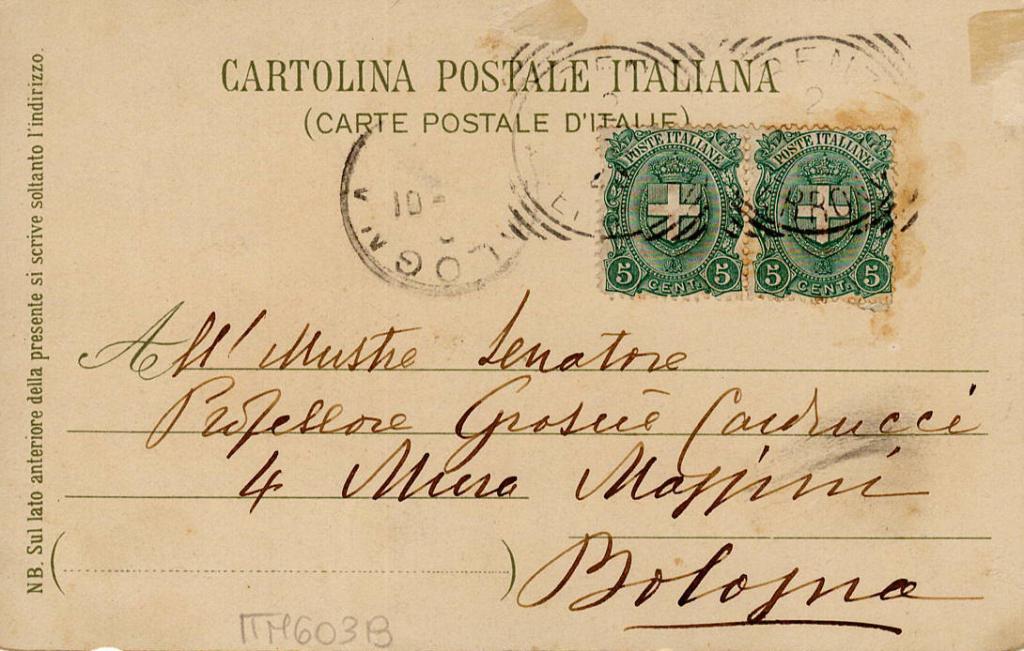 CARTOLINA POSTALE ITALIANA
(CARTE POSTALE D'ITALIE)
NB. Sul lato anteriore della presente si scrive soltanto l'indirizzo.
POSTE ITALIANE POSTE ITALIANE
5 CENT. 5 5 CENT. 5
10
All' Illustre Senatore
Professore Giosuè Carducci
4 Mura Mazzini
Bologna
ITM603B